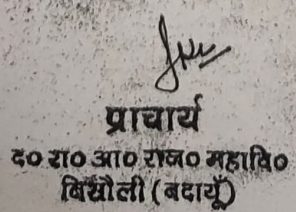 प्राचार्य
द० रा० आ० राज० महावि०
बिसौली (बदायूँ)